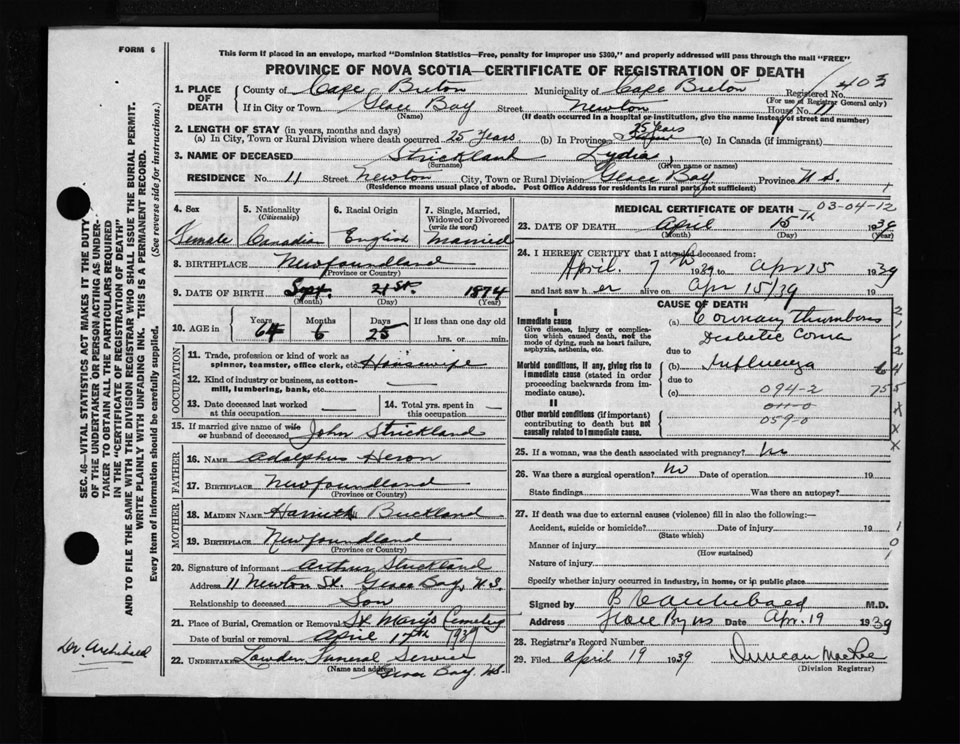 FORM 6
This form if placed in an envelope, marked "Dominion Statistics—Free, penalty for improper use $300," and properly addressed will pass through the mail "FREE"
PROVINCE OF NOVA SCOTIA—CERTIFICATE OF REGISTRATION OF DEATH
403
1. PLACE OF DEATH County of Cape Breton Municipality of Cape Breton Registered No.
(For use of Registrar General only)
If in City or Town Glace Bay Street Newton House No. 11
(Name) (If death occurred in a hospital or institution, give the name instead of street and number)
2. LENGTH OF STAY (in years, months and days)
(a) In City, Town or Rural Division where death occurred 25 Years (b) In Province 25 Years (c) In Canada (if immigrant)
3. NAME OF DECEASED Strickland Lydia
(Surname) (Given name or names)
RESIDENCE No. 11 Street Newton City, Town or Rural Division Glace Bay Province N.S.
(Residence means usual place of abode. Post Office Address for residents in rural parts not sufficient)
4. Sex Female
5. Nationality (Citizenship) Canadian
6. Racial Origin English
7. Single, Married, Widowed or Divorced (write the word) Married
8. BIRTHPLACE Newfoundland
(Province or Country)
9. DATE OF BIRTH Sept. 21st. 1874
(Month) (Day) (Year)
10. AGE in Years 64 Months 6 Days 25 If less than one day old
hrs. or min.
OCCUPATION
11. Trade, profession or kind of work as spinner, teamster, office clerk, etc. Housewife
12. Kind of industry or business, as cotton-mill, lumbering, bank, etc. —
13. Date deceased last worked at this occupation —
14. Total yrs. spent in this occupation —
15. If married give name of wife or husband of deceased John Strickland
FATHER
16. NAME Adolphus Heron
17. BIRTHPLACE Newfoundland
(Province or Country)
MOTHER
18. MAIDEN NAME Harriett Buckland
19. BIRTHPLACE Newfoundland
(Province or Country)
20. Signature of informant Arthur Strickland
Address 11 Newton St. Glace Bay, N.S.
Relationship to deceased Son
21. Place of Burial, Cremation or Removal St Mary's Cemetery
Date of burial or removal April 17th 1939
22. UNDERTAKER Lowden Funeral Service
(Name and address) Glace Bay NS
MEDICAL CERTIFICATE OF DEATH 03-04-12
23. DATE OF DEATH April 15th 1939
(Month) (Day) (Year)
24. I HEREBY CERTIFY that I attended deceased from:
April. 7th 1939 to Apr 15 1939
and last saw her alive on Apr 15/39 19
CAUSE OF DEATH
I
Immediate cause
Give disease, injury or complication which caused death, not the mode of dying, such as heart failure, asphyxia, asthenia, etc.
(a) Coronary Thrombosis
Diabetic Coma
due to
Morbid conditions, if any, giving rise to immediate cause (stated in order proceeding backwards from immediate cause).
(b) Influenza
due to
(c) 094-2
II
Other morbid conditions (if important) contributing to death but not causally related to immediate cause.
059-0
25. If a woman, was the death associated with pregnancy? No
26. Was there a surgical operation? No Date of operation 19
State findings Was there an autopsy?
27. If death was due to external causes (violence) fill in also the following:—
Accident, suicide or homicide? Date of injury 19
(State which)
Manner of injury
(How sustained)
Nature of injury
Specify whether injury occurred in industry, in home, or in public place
Signed by B Archibald M.D.
Address Glace Bay NS Date Apr. 19 1939
28. Registrar's Record Number
29. Filed April 19 1939 Duncan MacRae
(Division Registrar)
SEC. 46—VITAL STATISTICS ACT MAKES IT THE DUTY OF THE UNDERTAKER OR PERSON ACTING AS UNDERTAKER TO OBTAIN ALL THE PARTICULARS REQUIRED IN THE "CERTIFICATE OF REGISTRATION OF DEATH"
AND TO FILE THE SAME WITH THE DIVISION REGISTRAR WHO SHALL ISSUE THE BURIAL PERMIT.
WRITE PLAINLY WITH UNFADING INK. THIS IS A PERMANENT RECORD.
Every item of information should be carefully supplied. (See reverse side for instructions.)
Dr Archibald